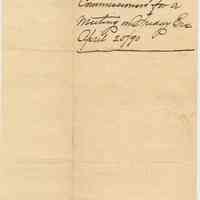 Commissioners for a
Meeting on Friday Eve
April 20/90